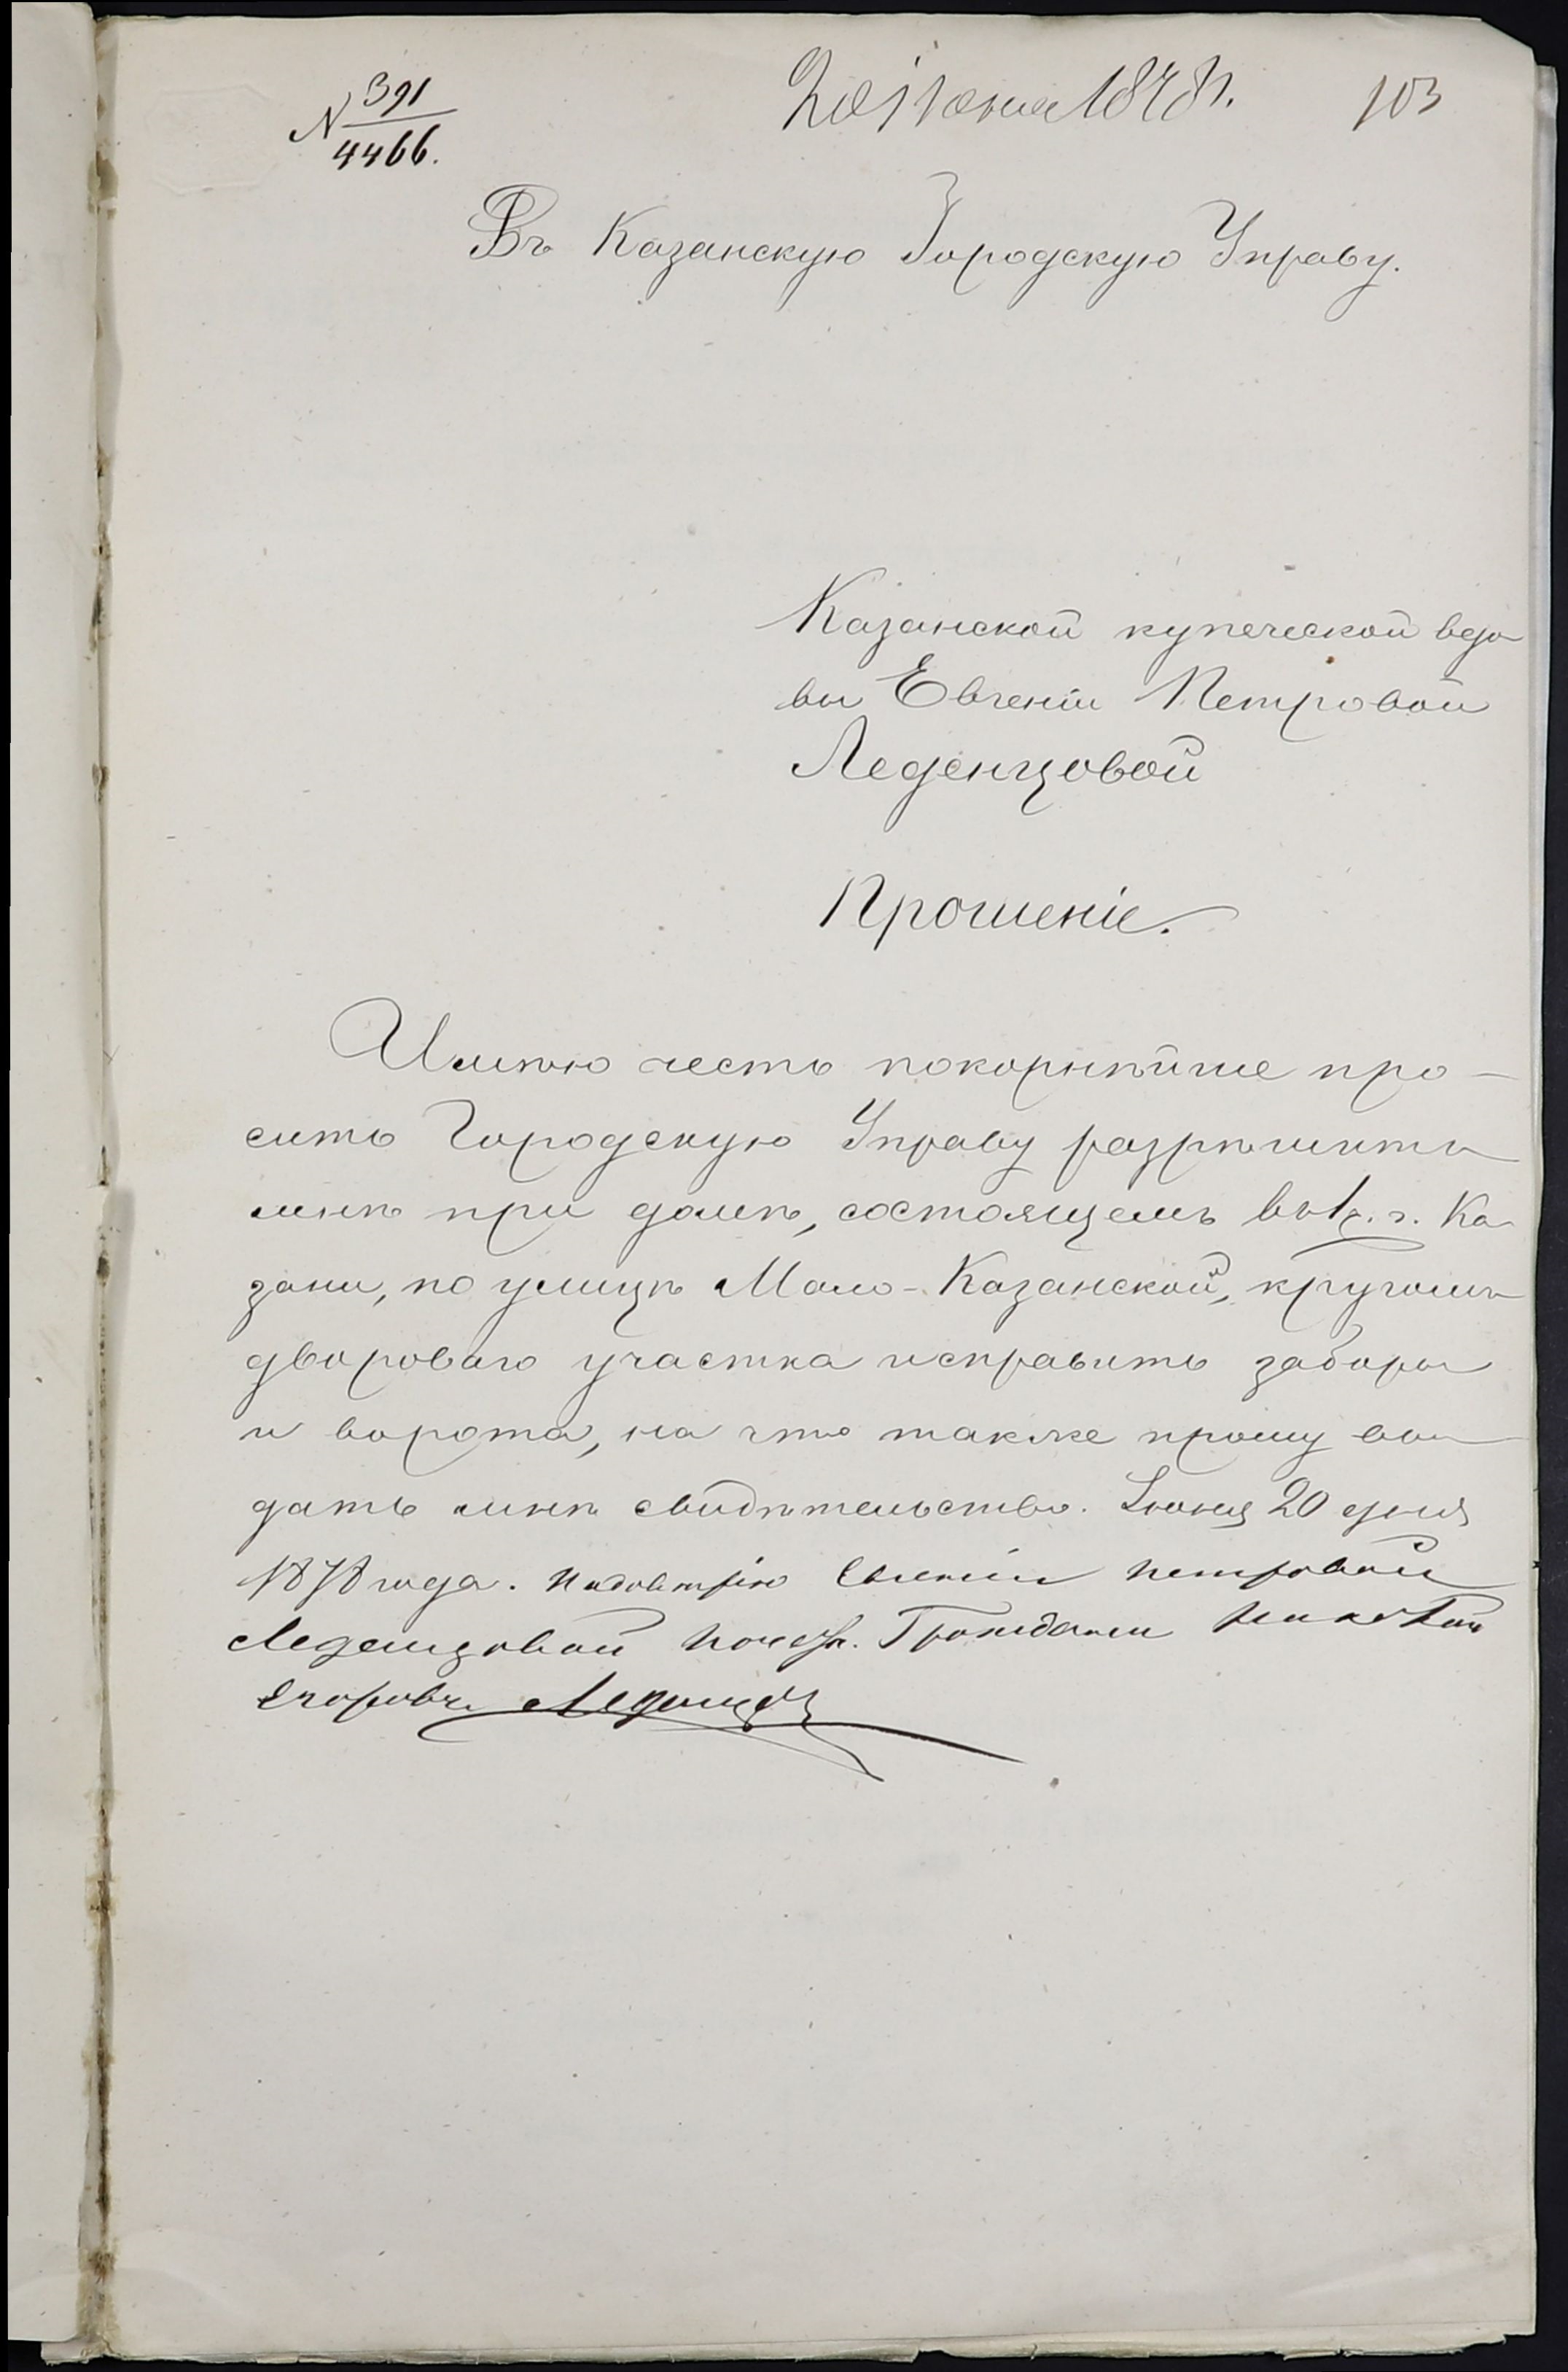 N 391/4466.
20 Іюня 1878 г.
103
Въ Казанскую Городскую Управу.
Казанской купеческой вдо-
вы Евгеніи Петровой
Леденцовой
Прошеніе.
Имѣю честь покорнѣйше про-
сить Городскую Управу разрѣшить
мнѣ при домѣ, состоящемъ въ 1 ч. г. Ка-
зани, по улицѣ Мало-Казанской, кругомъ
двороваго участка исправить заборы
и ворота, на что также прошу вы-
дать мнѣ свидѣтельство. Іюня 20 дня
1878 года. Евгеніи Петровой
Леденцовой Гражданин
Егоровъ Леденцовъ